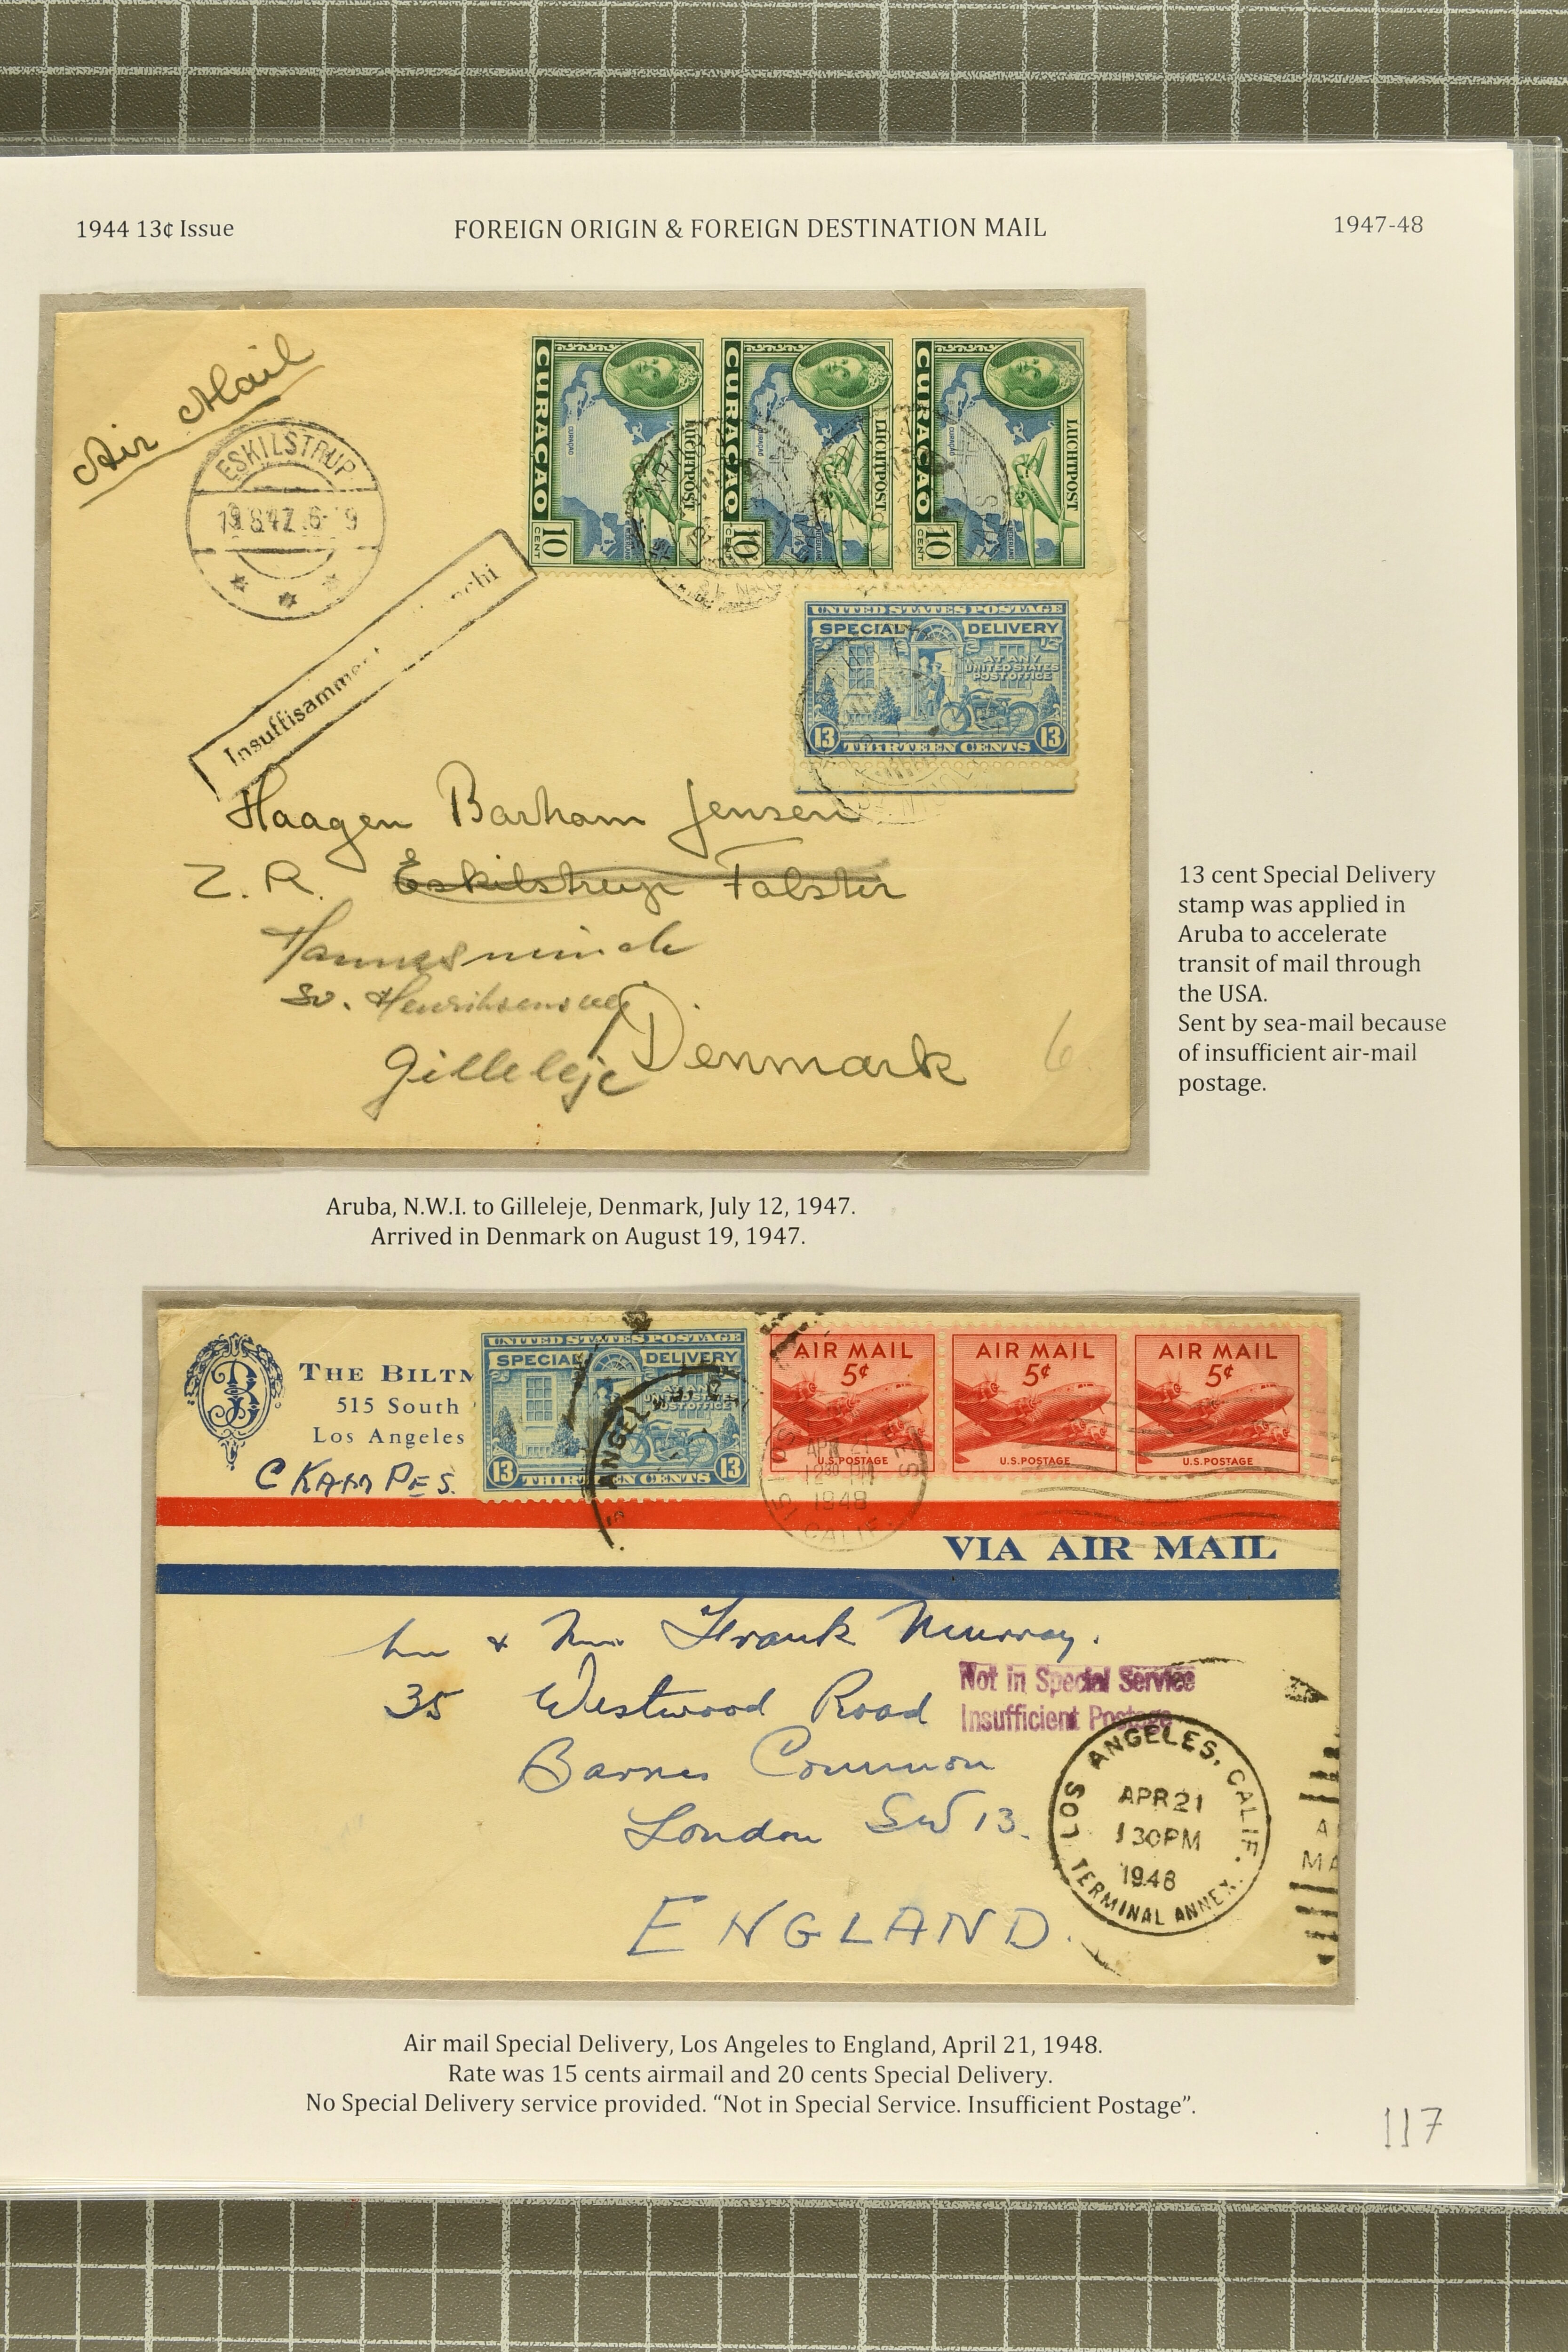 1944 13¢ Issue
FOREIGN ORIGIN & FOREIGN DESTINATION MAIL
1947-48
Air Mail
ESKILSTRUP
19.8.47.6-9
Insuffisamment
CURAÇAO
LUCHTPOST
CURAÇAO
10
CENT
CURAÇAO
LUCHTPOST
CURAÇAO
NEDERLAND
10
CENT
CURAÇAO
LUCHTPOST
CURAÇAO
NEDERLAND
10
CENT
UNITED STATES POSTAGE
SPECIAL DELIVERY
AT ANY
UNITED STATES
POST OFFICE
13 THIRTEEN CENTS 13
Haagen Barham Jensen
Z. R. Eskilstrup Falster
Sv. Henriksensvej
Gilleleje
Denmark
6
13 cent Special Delivery
stamp was applied in
Aruba to accelerate
transit of mail through
the USA.
Sent by sea-mail because
of insufficient air-mail
postage.
Aruba, N.W.I. to Gilleleje, Denmark, July 12, 1947.
Arrived in Denmark on August 19, 1947.
THE BILTM
515 South
Los Angeles
C KAMPES.
UNITED STATES POSTAGE
SPECIAL DELIVERY
UNITED STATES
POST OFFICE
13 THIRTEEN CENTS 13
ANGEL
AIR MAIL
5¢
U.S. POSTAGE
AIR MAIL
5¢
U.S. POSTAGE
AIR MAIL
5¢
U.S. POSTAGE
APR 21
12 30 PM
1948
CALIF.
VIA AIR MAIL
Mr & Mrs. Frank Murray.
35 Westwood Road
Barnes Common
London SW 13.
ENGLAND.
Not in Special Service
Insufficient Postage
LOS ANGELES, CALIF.
APR 21
1 30 PM
1948
TERMINAL ANNEX.
A
MA
Air mail Special Delivery, Los Angeles to England, April 21, 1948.
Rate was 15 cents airmail and 20 cents Special Delivery.
No Special Delivery service provided. “Not in Special Service. Insufficient Postage”.
117